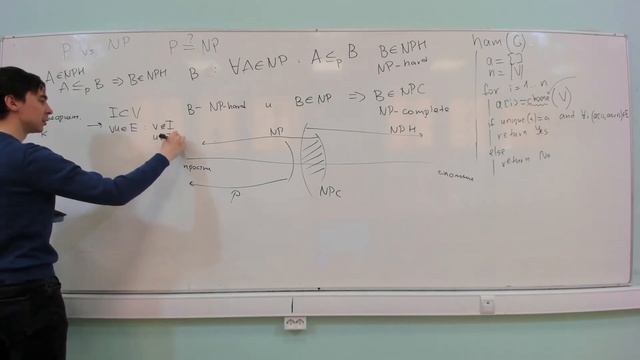 P vs. NP P ?= NP
A∈NPH
A ≤p B ⇒ B∈NPH
B : ∀A∈NP . A ≤p B B∈NPH
NP-hard
B - NP-hard и B∈NP ⇒ B∈NPC
NP-complete
→ I⊂V
vu∈E : v∉I
u
NP NPH
простые сложные
P NPC
ham(G)
a = []
n = |V|
for i = 1..n
a[i] = choose(V)
if unique(a)=a and
return Yes
else
return No